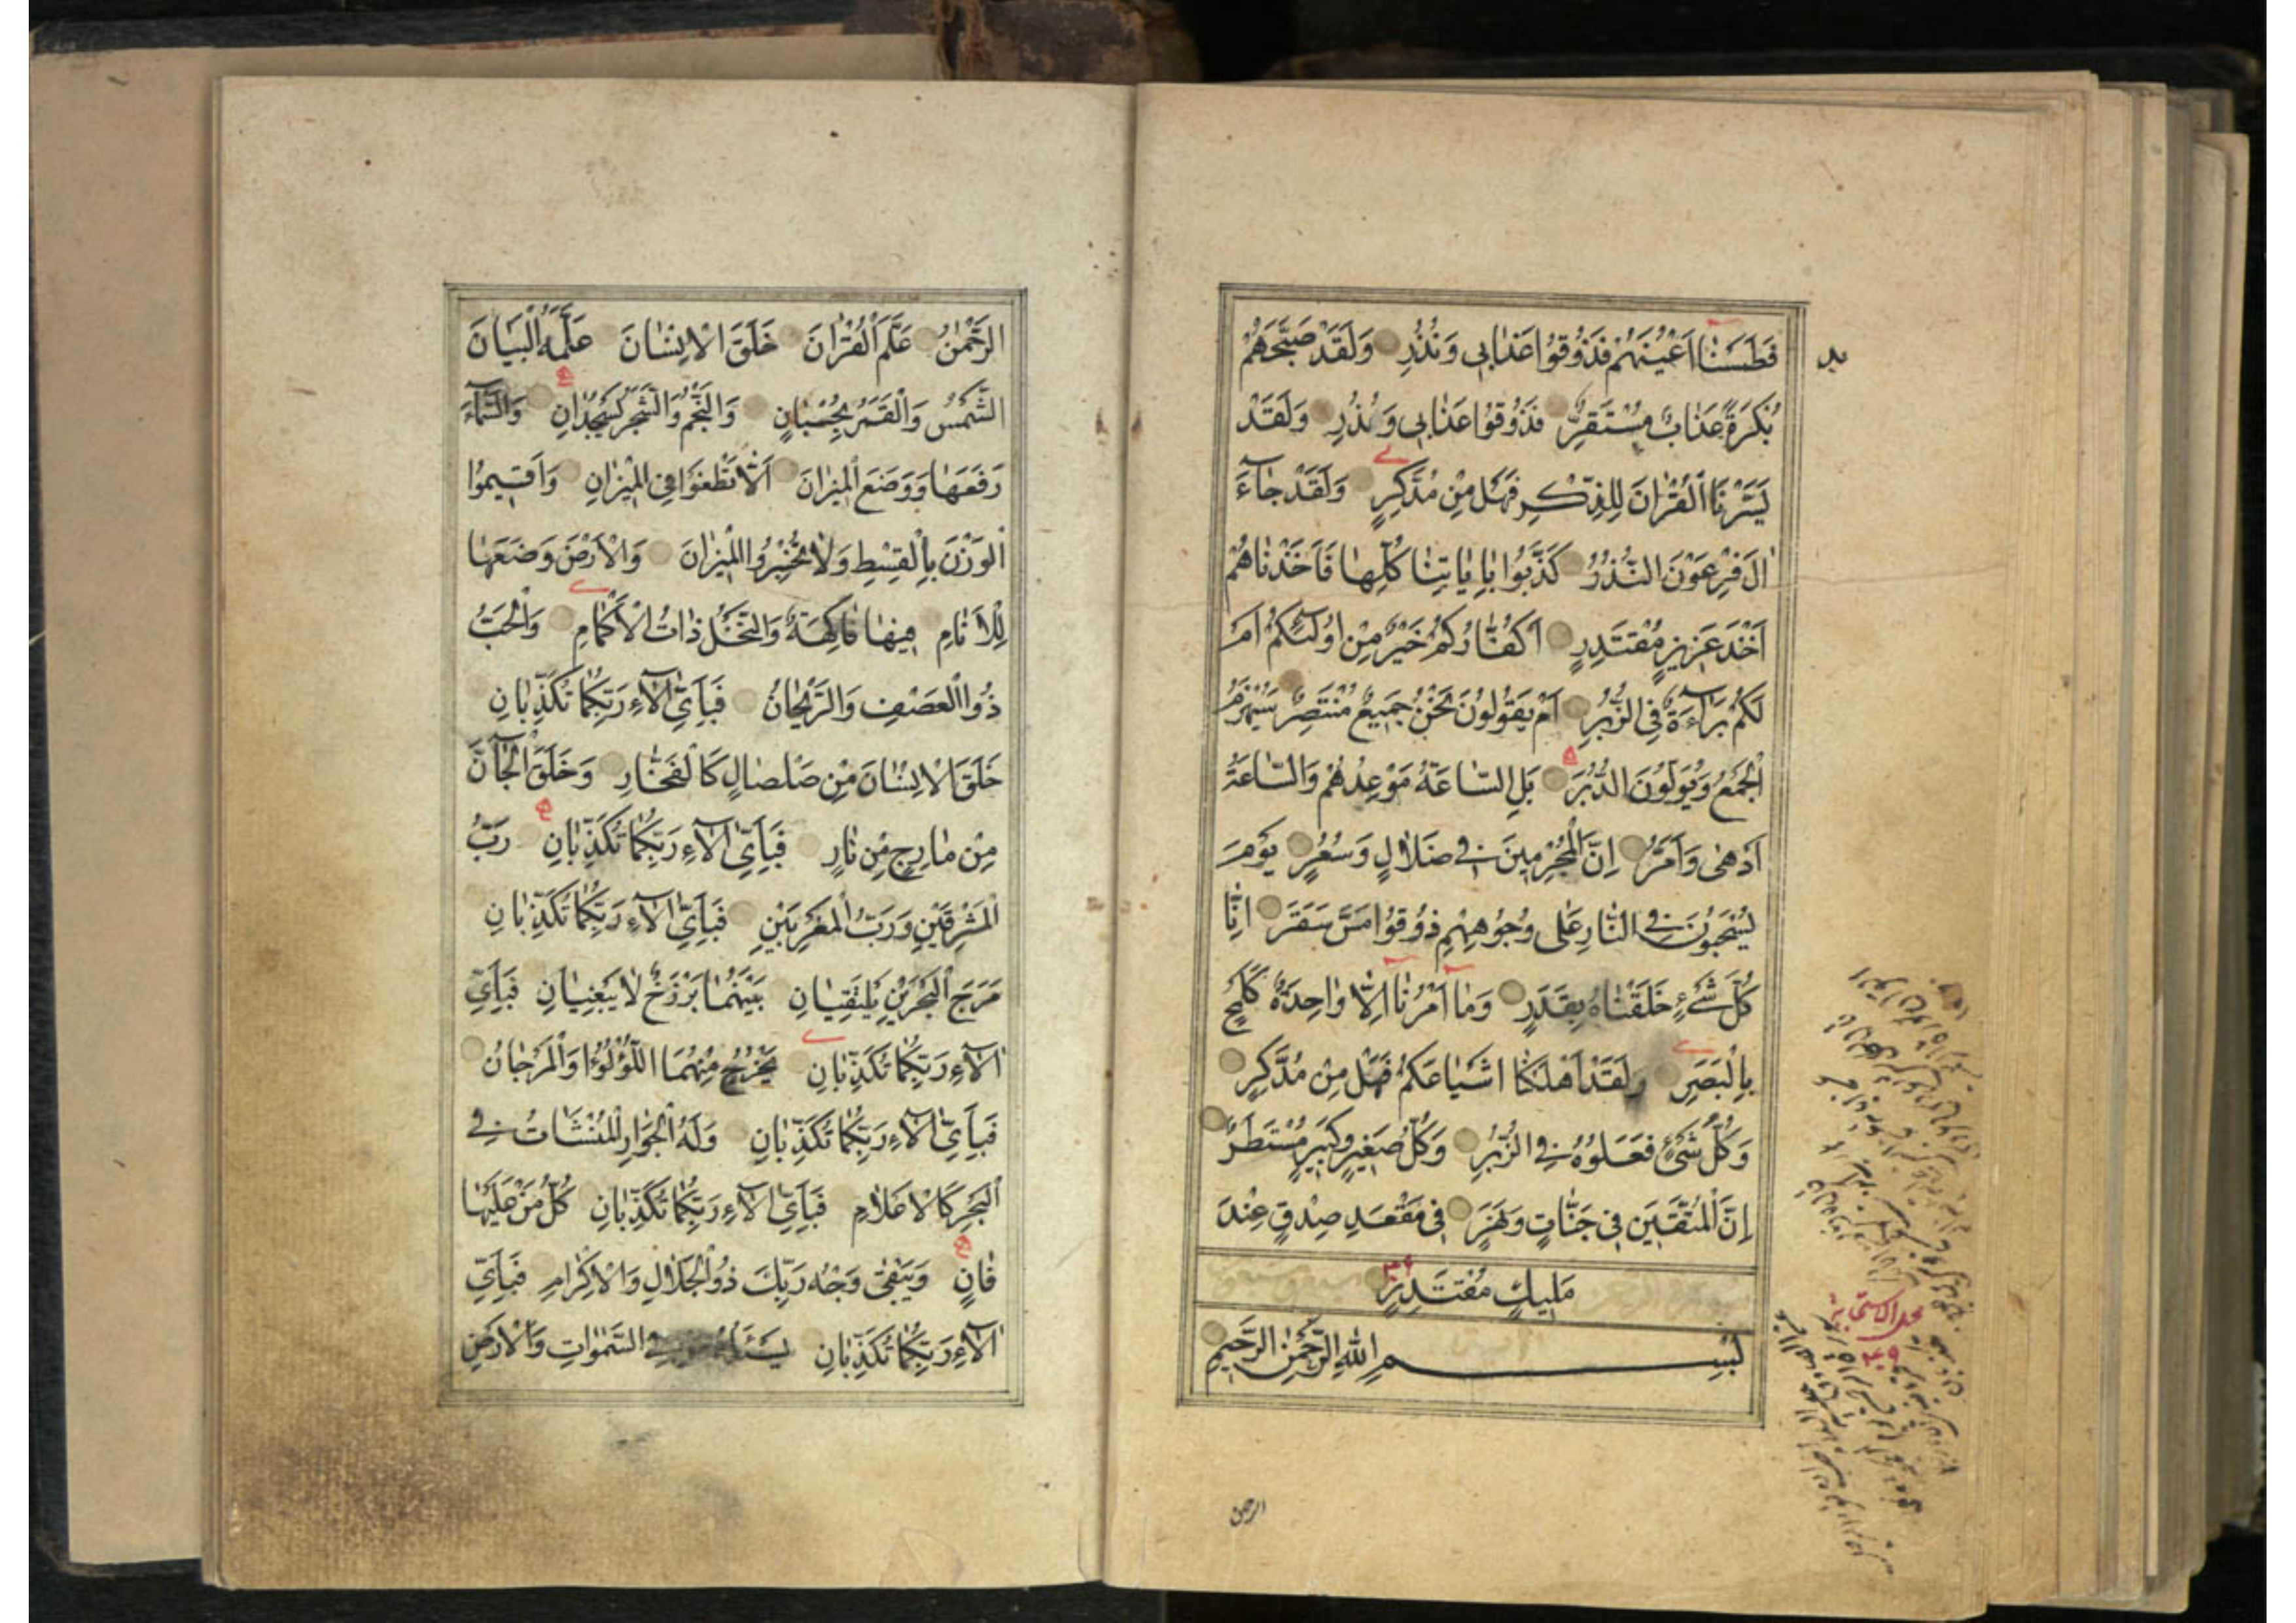 فَطَمَسْنَا اَعْيُنَهُمْ فَذُوقُوا عَذَابِى وَنُذُرِ وَلَقَدْ صَبَّحَهُمْ
بُكْرَةً عَذَابٌ مُسْتَقِرٌّ فَذُوقُوا عَذَابِى وَنُذُرِ وَلَقَدْ
يَسَّرْنَا الْقُرْاٰنَ لِلذِّكْرِ فَهَلْ مِنْ مُدَّكِرٍ وَلَقَدْ جَآءَ
اٰلَ فِرْعَوْنَ النُّذُرُ كَذَّبُوا بِاٰيَاتِنَا كُلِّهَا فَاَخَذْنَاهُمْ
اَخْذَ عَزِيزٍ مُقْتَدِرٍ اَكُفَّارُكُمْ خَيْرٌ مِنْ اُولٰٓئِكُمْ اَمْ
لَكُمْ بَرَآءَةٌ فِى الزُّبُرِ اَمْ يَقُولُونَ نَحْنُ جَمِيعٌ مُنْتَصِرٌ سَيُهْزَمُ
الْجَمْعُ وَيُوَلُّونَ الدُّبُرَ بَلِ السَّاعَةُ مَوْعِدُهُمْ وَالسَّاعَةُ
اَدْهٰى وَاَمَرُّ اِنَّ الْمُجْرِمِينَ فِى ضَلَالٍ وَسُعُرٍ يَوْمَ
يُسْحَبُونَ فِى النَّارِ عَلٰى وُجُوهِهِمْ ذُوقُوا مَسَّ سَقَرَ اِنَّا
كُلَّ شَىْءٍ خَلَقْنَاهُ بِقَدَرٍ وَمَا اَمْرُنَا اِلَّا وَاحِدَةٌ كَلَمْحٍ
بِالْبَصَرِ وَلَقَدْ اَهْلَكْنَا اَشْيَاعَكُمْ فَهَلْ مِنْ مُدَّكِرٍ
وَكُلُّ شَىْءٍ فَعَلُوهُ فِى الزُّبُرِ وَكُلُّ صَغِيرٍ وَكَبِيرٍ مُسْتَطَرٌ
اِنَّ الْمُتَّقِينَ فِى جَنَّاتٍ وَنَهَرٍ فِى مَقْعَدِ صِدْقٍ عِنْدَ
مَلِيكٍ مُقْتَدِرٍ
بِسْمِ اللّٰهِ الرَّحْمٰنِ الرَّحِيمِ
الرحمن
اَلرَّحْمٰنُ عَلَّمَ الْقُرْاٰنَ خَلَقَ الْاِنْسَانَ عَلَّمَهُ الْبَيَانَ
اَلشَّمْسُ وَالْقَمَرُ بِحُسْبَانٍ وَالنَّجْمُ وَالشَّجَرُ يَسْجُدَانِ وَالسَّمَآءَ
رَفَعَهَا وَوَضَعَ الْمِيزَانَ اَلَّا تَطْغَوْا فِى الْمِيزَانِ وَاَقِيمُوا
الْوَزْنَ بِالْقِسْطِ وَلَا تُخْسِرُوا الْمِيزَانَ وَالْاَرْضَ وَضَعَهَا
لِلْاَنَامِ فِيهَا فَاكِهَةٌ وَالنَّخْلُ ذَاتُ الْاَكْمَامِ وَالْحَبُّ
ذُوا الْعَصْفِ وَالرَّيْحَانُ فَبِاَىِّ اٰلَآءِ رَبِّكُمَا تُكَذِّبَانِ
خَلَقَ الْاِنْسَانَ مِنْ صَلْصَالٍ كَالْفَخَّارِ وَخَلَقَ الْجَآنَّ
مِنْ مَارِجٍ مِنْ نَارٍ فَبِاَىِّ اٰلَآءِ رَبِّكُمَا تُكَذِّبَانِ رَبُّ
الْمَشْرِقَيْنِ وَرَبُّ الْمَغْرِبَيْنِ فَبِاَىِّ اٰلَآءِ رَبِّكُمَا تُكَذِّبَانِ
مَرَجَ الْبَحْرَيْنِ يَلْتَقِيَانِ بَيْنَهُمَا بَرْزَخٌ لَا يَبْغِيَانِ فَبِاَىِّ
اٰلَآءِ رَبِّكُمَا تُكَذِّبَانِ يَخْرُجُ مِنْهُمَا اللُّؤْلُؤُا وَالْمَرْجَانُ
فَبِاَىِّ اٰلَآءِ رَبِّكُمَا تُكَذِّبَانِ وَلَهُ الْجَوَارِ الْمُنْشَاٰتُ فِى
الْبَحْرِ كَالْاَعْلَامِ فَبِاَىِّ اٰلَآءِ رَبِّكُمَا تُكَذِّبَانِ كُلُّ مَنْ عَلَيْهَا
فَانٍ وَيَبْقٰى وَجْهُ رَبِّكَ ذُو الْجَلَالِ وَالْاِكْرَامِ فَبِاَىِّ
اٰلَآءِ رَبِّكُمَا تُكَذِّبَانِ فِى السَّمٰوَاتِ وَالْاَرْضِ